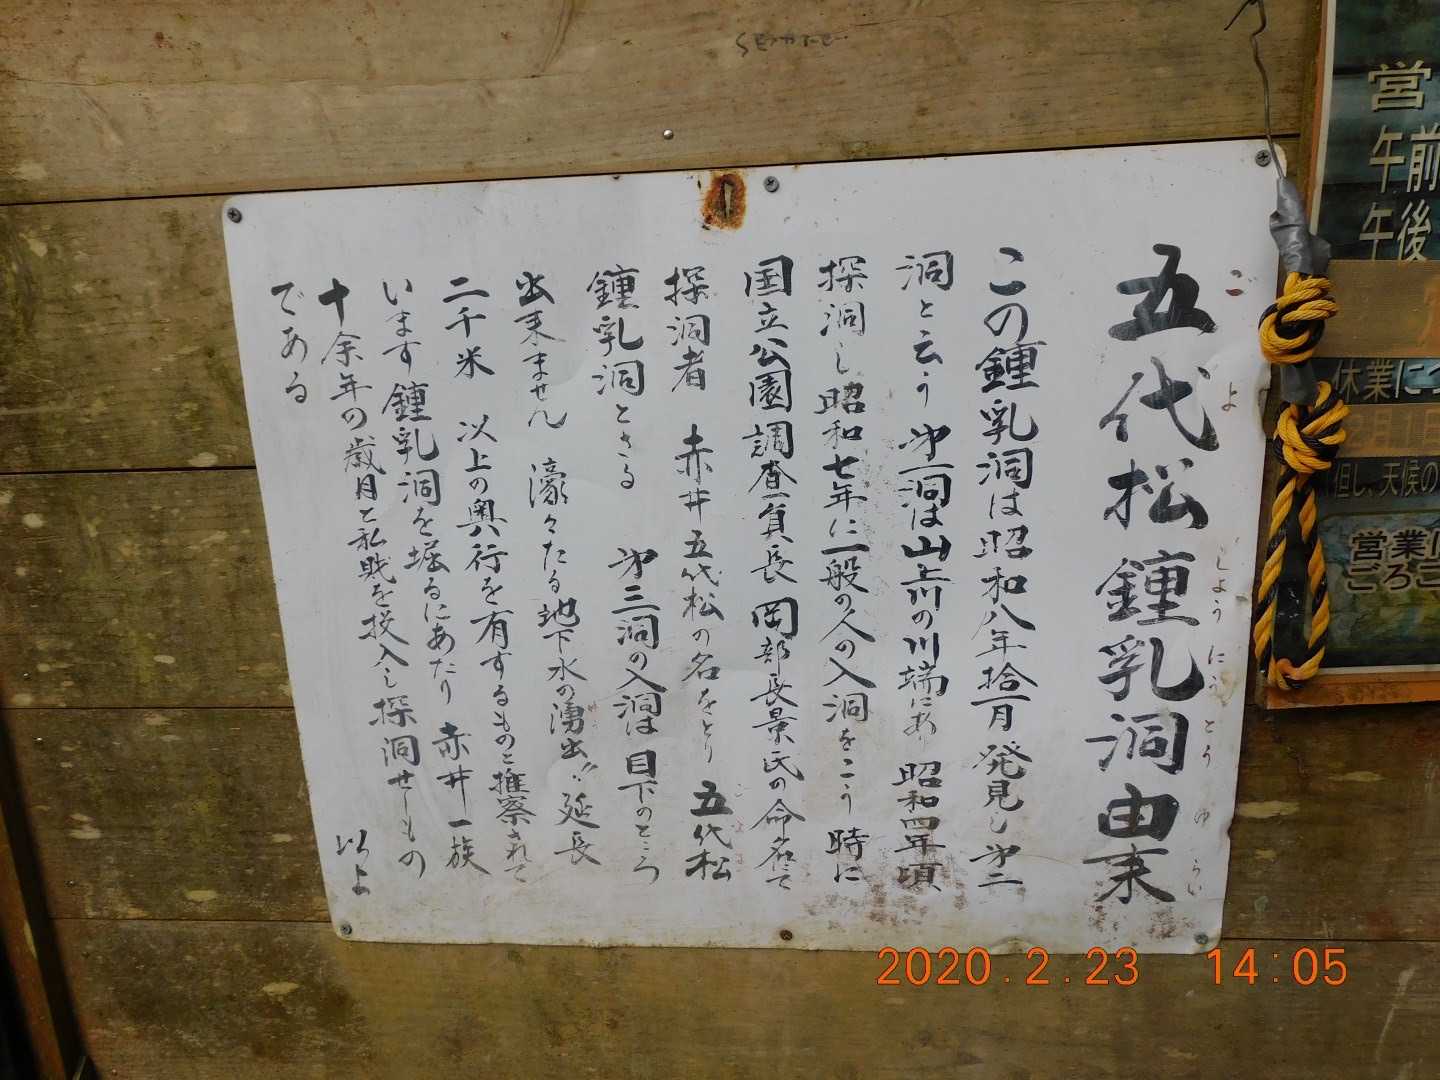 五代松鍾乳洞由来
ごよ しょうにうとう ゆらい
この鍾乳洞は昭和八年拾一月発見し第二
洞と云う 第一洞は山上川の川端にあり 昭和四年頃
探洞し昭和七年に一般の人の入洞をこう 時に
国立公園調査員長 岡部長景氏の命名にて
探洞者 赤井五代松の名をとり 五代松
鍾乳洞とさる 第三洞の入洞は 目下のところ
出来ません 濠々たる地下水の湧出 延長
二千米 以上の奥行を有するものと推察されて
います 鍾乳洞を堀るにあたり 赤井一族
十余年の歳月と私財を投入し探洞せしもの
である 以上
営
午前
午後
休業につ
2月1日
但し、天候の
営業に
ごろご
SEIKATE
2020.2.23 14:05